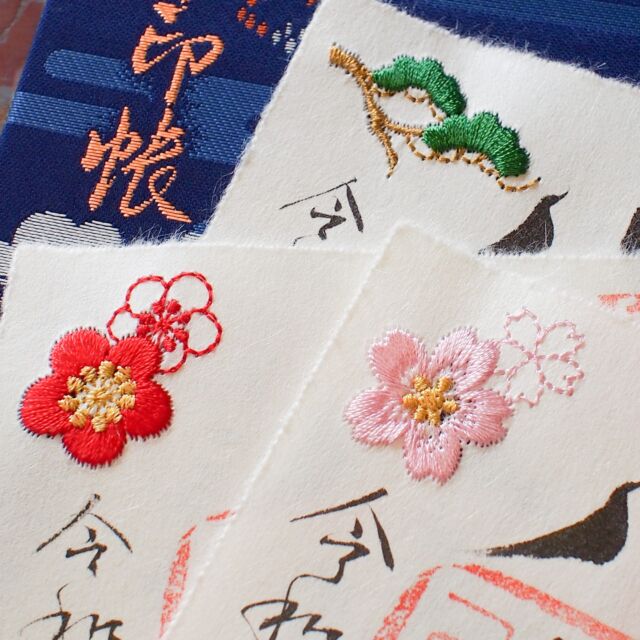 印帳
令
令和
令和